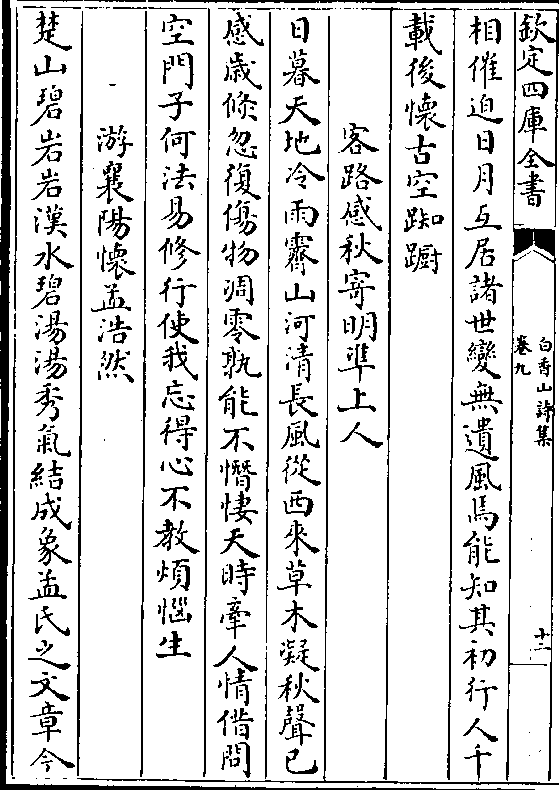 欽定四庫全書
白香山詩集
卷九
十二
相催迫日月互居諸世變無遺風焉能知其初行人千
載後懷古空踟躕
客路感秋寄明準上人
日暮天地冷雨霽山河清長風從西來草木凝秋聲已
感歲倏忽復傷物凋零孰能不憯悽天時牽人情借問
空門子何法易修行使我忘得心不教煩惱生
游襄陽懷孟浩然
楚山碧岩岩漢水碧湯湯秀氣結成象孟氏之文章今